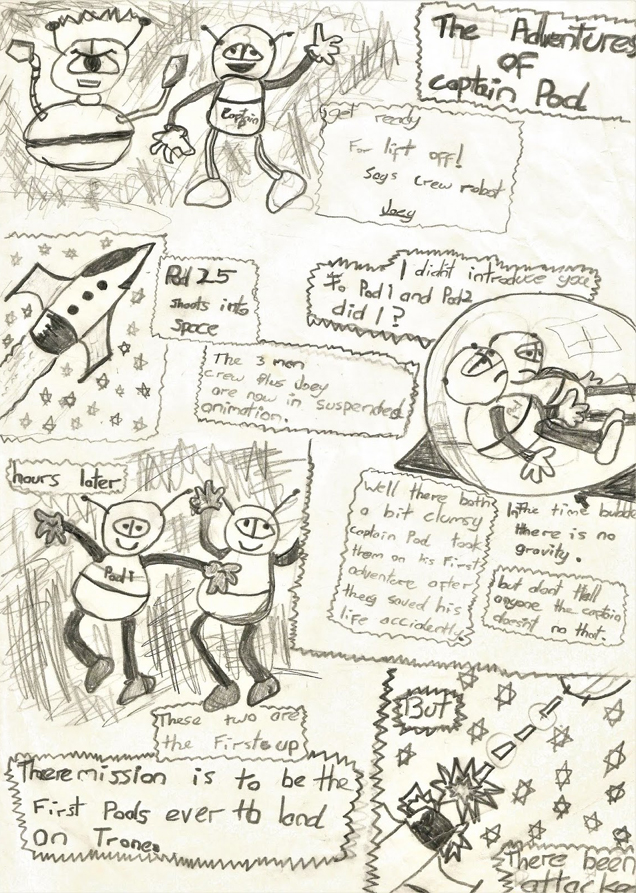 The Adventures
OF
Captain Pod
Captain
get ready
For lift off!
Says crew robot
Joey
Pod 25
shoots into
space
I didn't introduce you
to Pod 1 and Pod2
did I ?
The 3 man
crew plus Joey
are now in suspended
animation.
hours later
Pod 1
Well there both
a bit clumsy
captain Pod took
them on his First
adventure after
they saved his
life accidently
In the time bubble
there is no
gravity.
but dont tell
anyone the captain
doesnt no that.
These two are
the First up
There mission is to be the
First Pods ever to land
on
But
There been
attacked